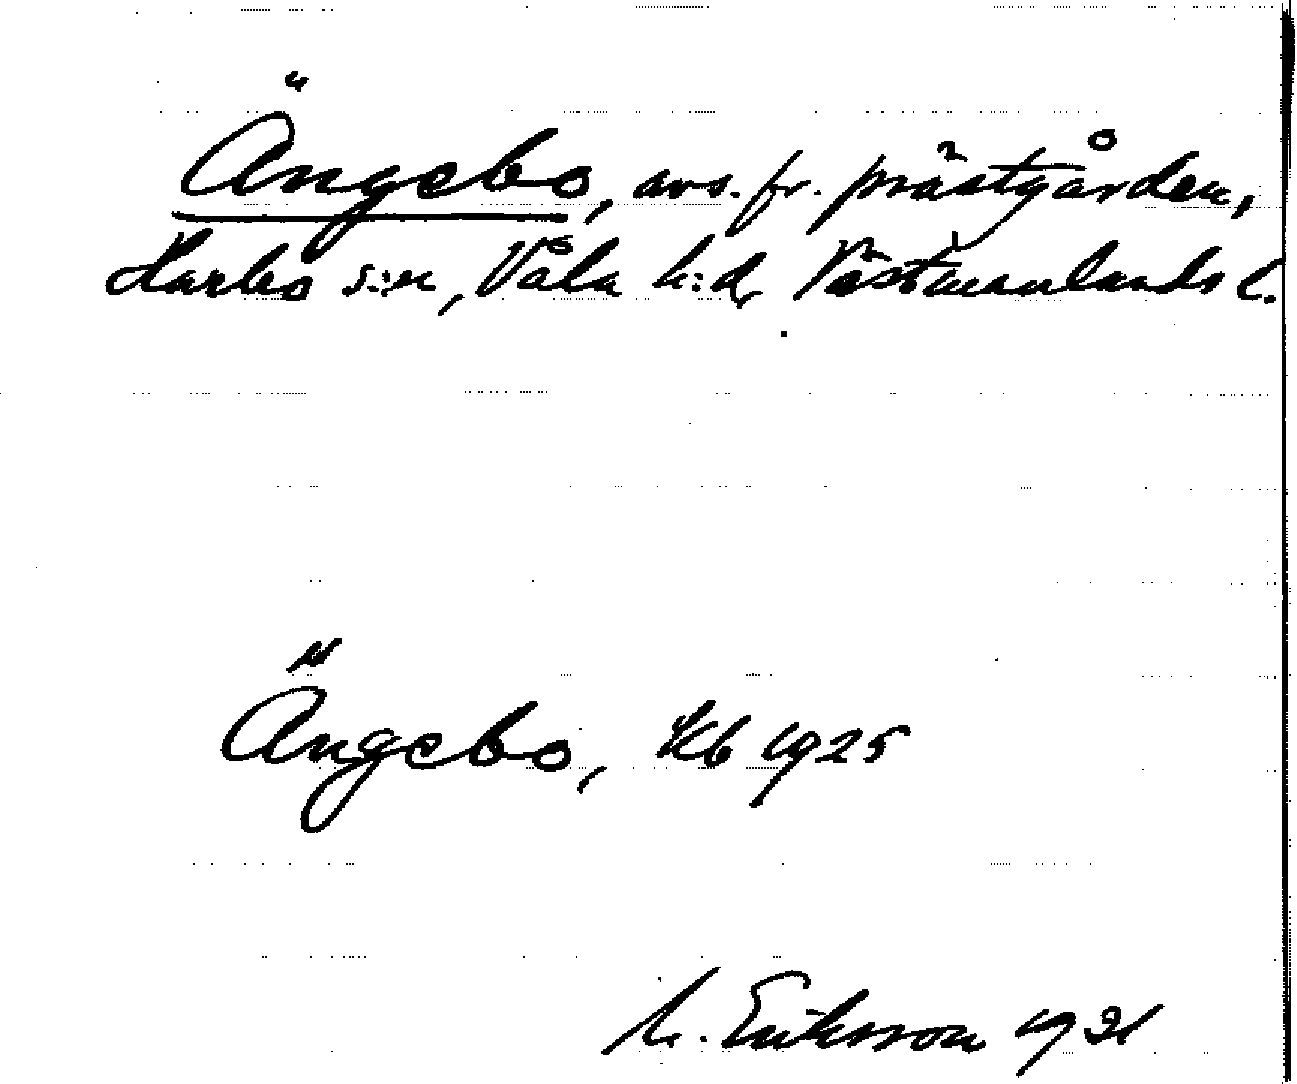 Ängebo, avs. fr. prästgården,
Harbo s:n, Våla h:d, Västmanlands l.
Ängebo, Kb 1925
M. Eriksson 1931